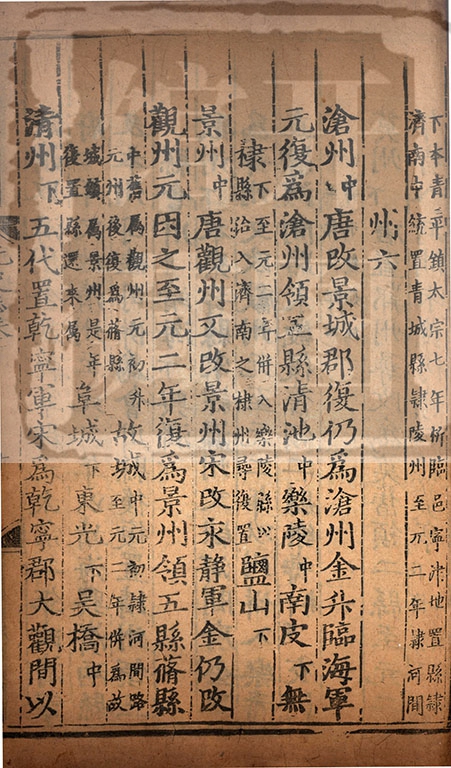 下本青平鎮太宗七年析臨邑寧津地置縣隸
濟南中統置青城縣隸陵州至元二年隸河間
州六
滄州中唐改景城郡復仍爲滄州金升臨海軍
元復爲滄州領五縣清池中樂陵中南皮下無
棣下至元二年併入樂陵縣以縣治入濟南之棣州尋復置鹽山下
景州中唐觀州又改景州宋改永静軍金仍改
觀州元因之至元二年復爲景州領五縣蓨縣
中舊屬觀州元初升元州後復爲蓨縣故城中元初隸河間路至元二年併爲故
城鎮屬景州是年復置縣還來屬阜城下東光下吳橋中
清州下五代置乾寧軍宋爲乾寧郡大觀間以